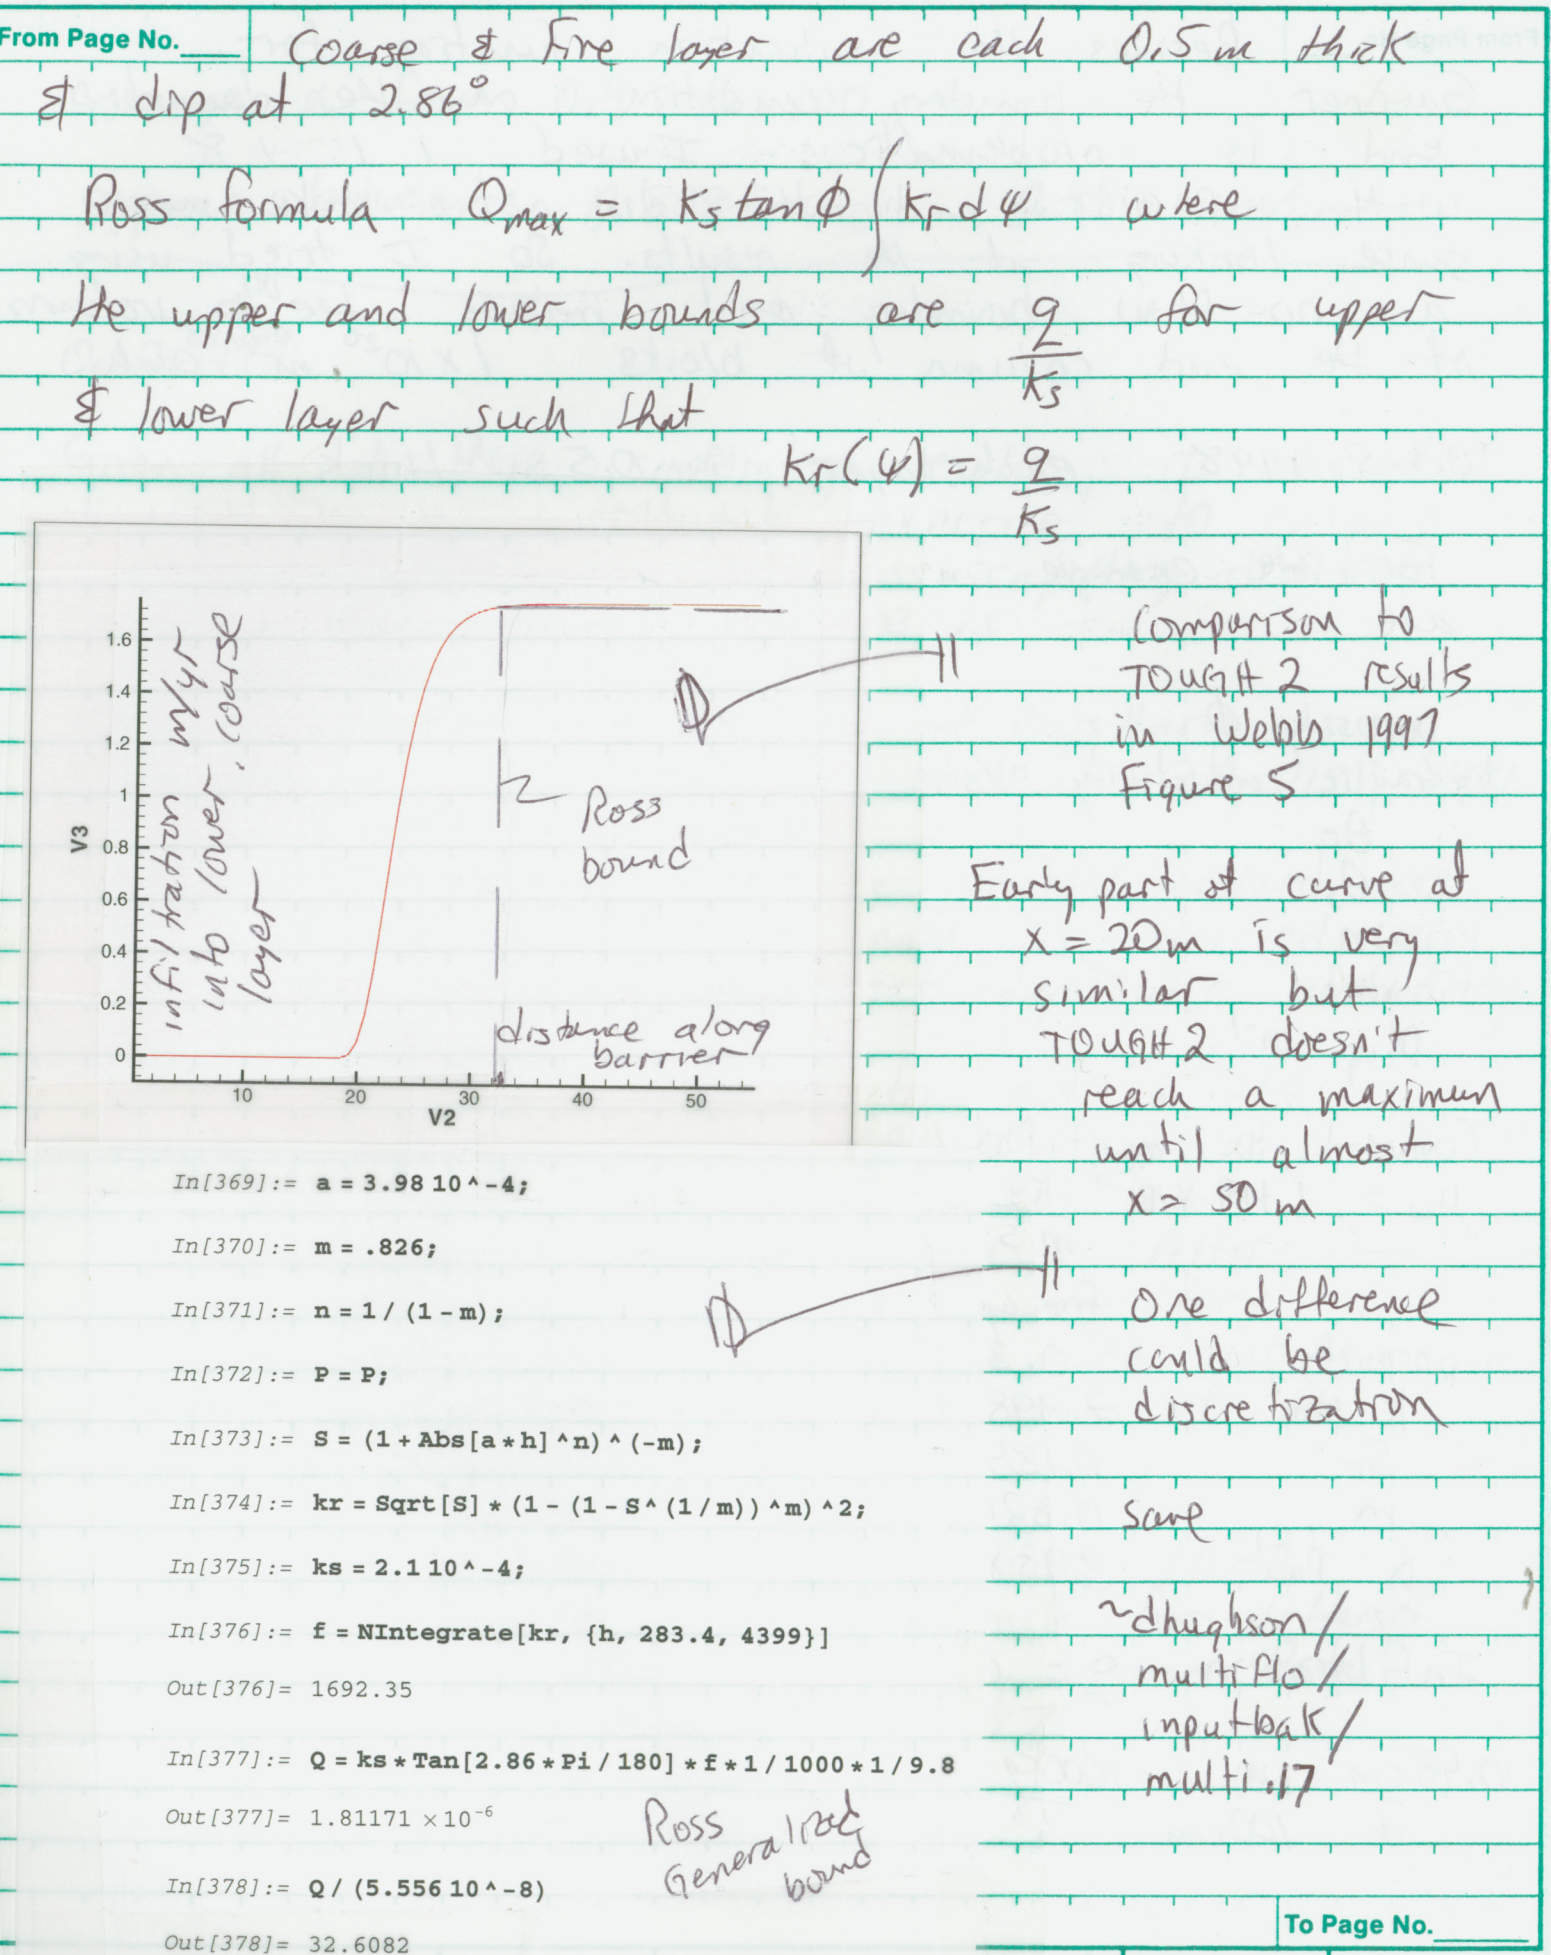 From Page No.____ Coarse & Fine layer are each 0.5m thick
& dip at 2.86°
Ross formula Qmax = Ks tanΦ ∫ Kr dψ where
the upper and lower bounds are q/Ks for upper
& lower layer such that
Kr(ψ) = q/Ks
infiltration m/yr
into lower, coarse
layer
V3
1.6
1.4
1.2
1
0.8
0.6
0.4
0.2
0
10 20 30 40 50
V2
Ross
bound
distance along
barrier
Comparison to
TOUGH 2 results
in Webb 1997
Figure 5
Early part of curve at
x = 20m is very
similar but
TOUGH 2 doesn't
reach a maximum
until almost
x = 50 m
One difference
could be
discretization
same
~dhughson/
multiflo/
inputbak/
multi.17
In[369]:= a = 3.98 10^-4;
In[370]:= m = .826;
In[371]:= n = 1/(1-m);
In[372]:= P = P;
In[373]:= S = (1+Abs[a*h]^n)^(-m);
In[374]:= kr = Sqrt[S]*(1-(1-S^(1/m))^m)^2;
In[375]:= ks = 2.1 10^-4;
In[376]:= f = NIntegrate[kr, {h, 283.4, 4399}]
Out[376]= 1692.35
In[377]:= Q = ks*Tan[2.86*Pi/180]*f*1/1000*1/9.8
Out[377]= 1.81171 ×10^-6
Ross
Generalized
bound
In[378]:= Q/(5.556 10^-8)
Out[378]= 32.6082
To Page No.____